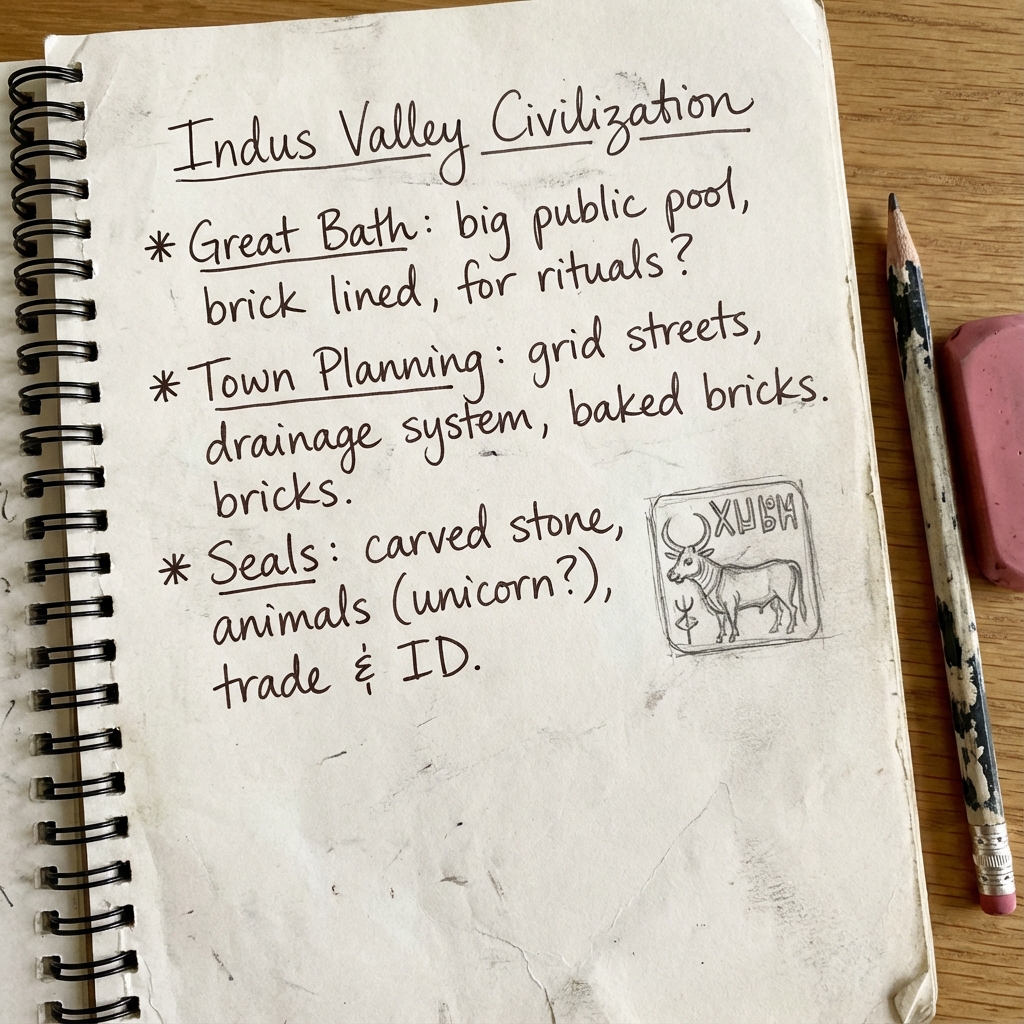 Indus Valley Civilization
* Great Bath: big public pool,
brick lined, for rituals?
* Town Planning: grid streets,
drainage system, baked bricks.
bricks.
* Seals: carved stone,
animals (unicorn?),
trade & ID.